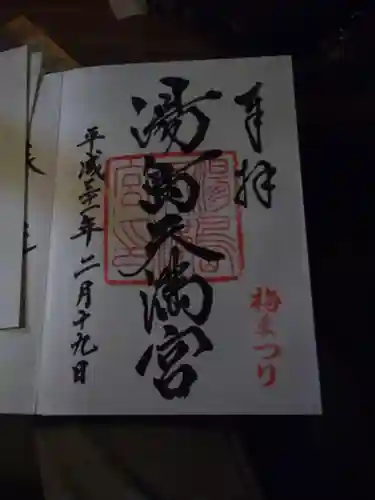 奉拝
梅まつり
湯島天満宮
平成三十一年二月十九日